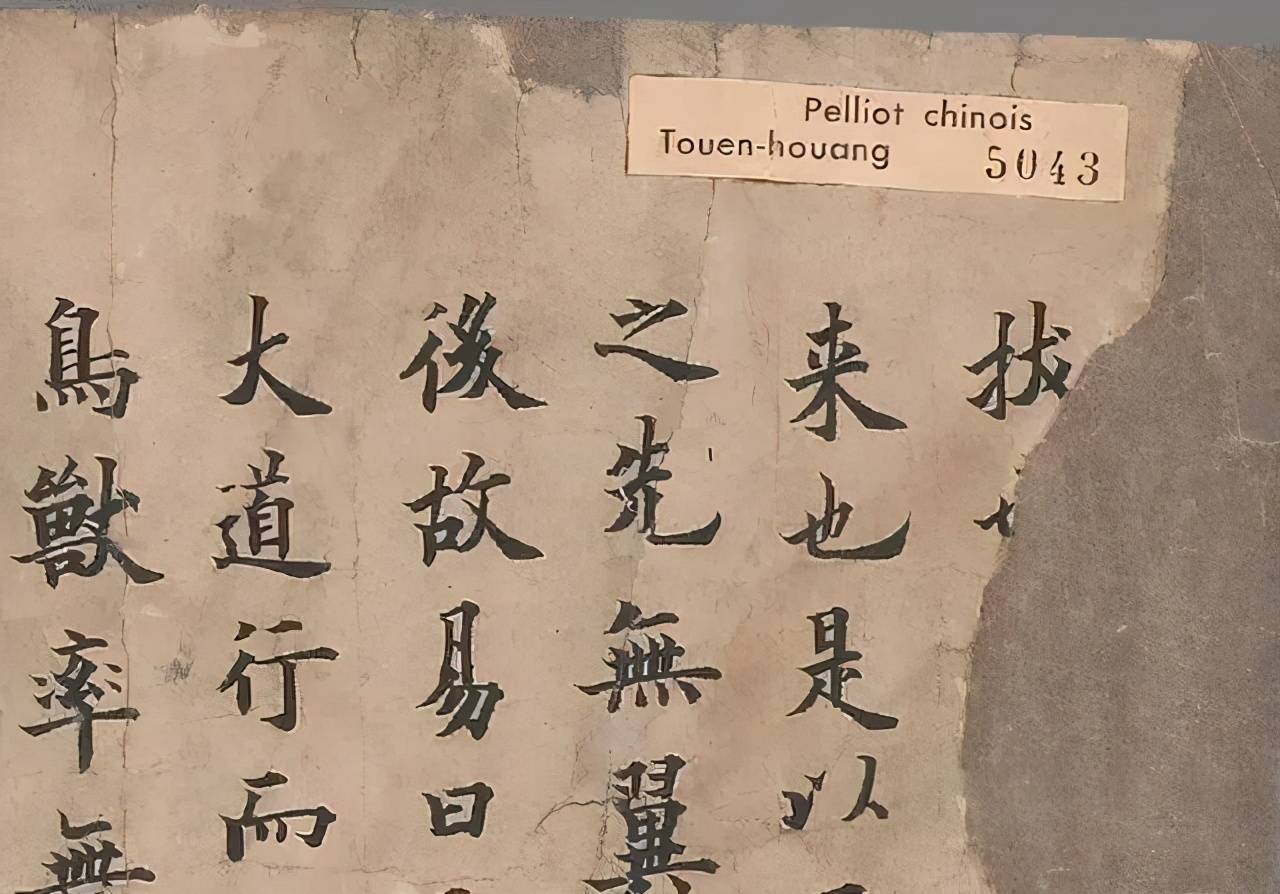 Pelliot chinois
Touen-houang 5043
拔
来也是以
之先無翼
後故易曰
大道行而
鳥獸率無